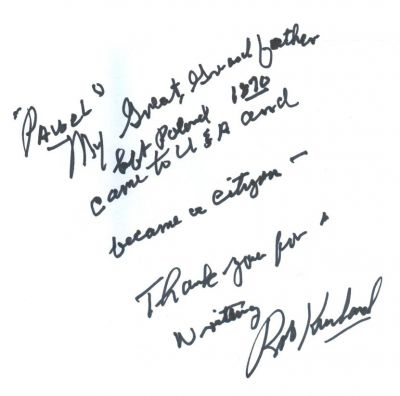 "Pawel"
My Great, Grandfather
left Poland 1870
came to USA and
became a citizen –
Thank you for
writing
Rob